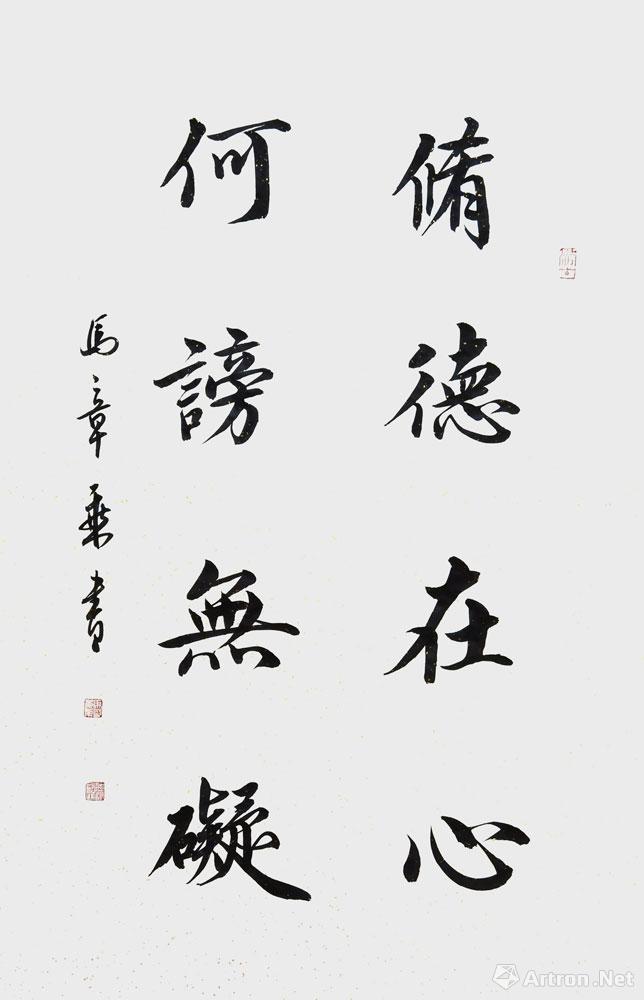 脩德在心
何謗無礙
馬章乘書
Artron.Net